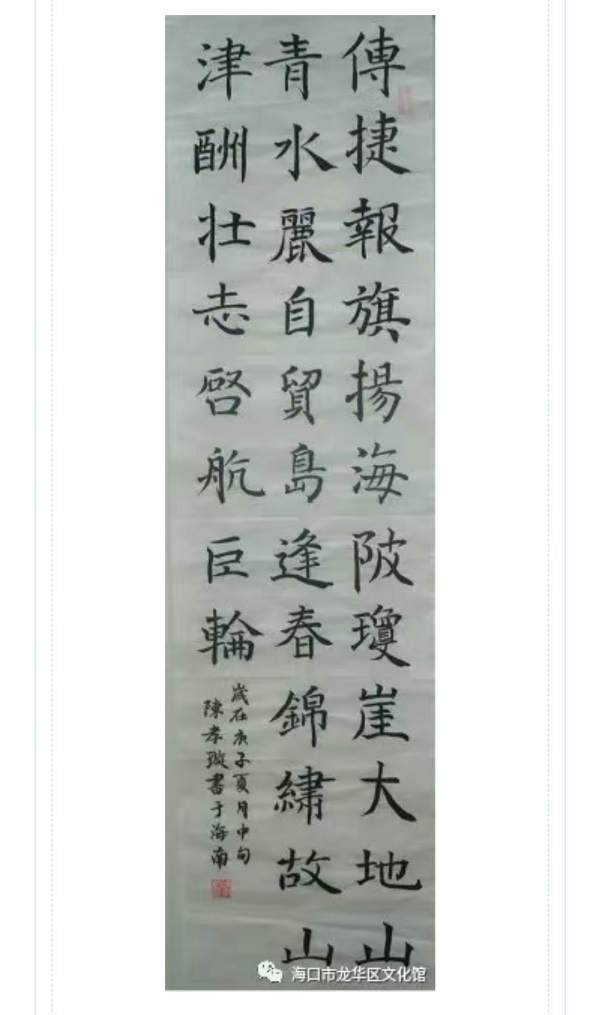 傳捷報旗揚海陂瓊崖大地山
青水麗自貿島逢春錦繡故山
津酬壯志啓航巨輪
歲在庚子夏月中旬
陳孝璇書于海南
海口市龙华区文化馆